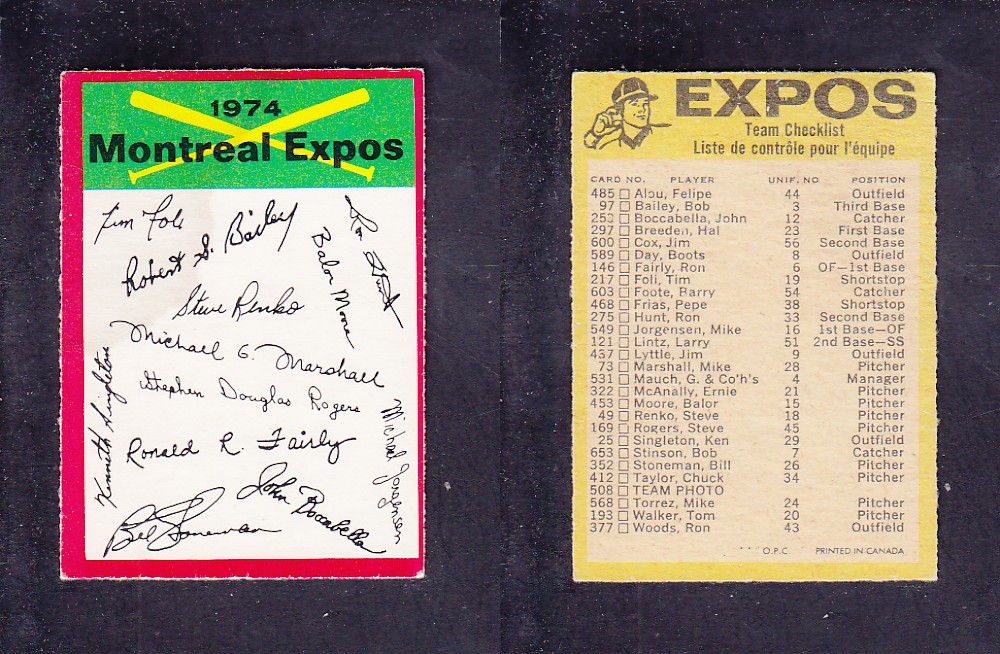 1974
Montreal Expos
Tim Foli
Robert S. Bailey
Ron Hunt
Balor Moore
Steve Renko
Michael G. Marshall
Stephen Douglas Rogers
Kenneth Singleton
Ronald R. Fairly
Michael Jorgensen
John Boccabella
Bill Stoneman
EXPOS
Team Checklist
Liste de contrôle pour l'équipe
CARD NO. PLAYER UNIF. NO POSITION
485 Alou, Felipe 44 Outfield
97 Bailey, Bob 3 Third Base
253 Boccabella, John 12 Catcher
297 Breeden, Hal 23 First Base
600 Cox, Jim 56 Second Base
589 Day, Boots 8 Outfield
146 Fairly, Ron 6 OF—1st Base
217 Foli, Tim 19 Shortstop
603 Foote, Barry 54 Catcher
468 Frias, Pepe 38 Shortstop
275 Hunt, Ron 33 Second Base
549 Jorgensen, Mike 16 1st Base—OF
121 Lintz, Larry 51 2nd Base—SS
437 Lyttle, Jim 9 Outfield
73 Marshall, Mike 28 Pitcher
531 Mauch, G. & Co'h's 4 Manager
322 McAnally, Ernie 21 Pitcher
453 Moore, Balor 15 Pitcher
49 Renko, Steve 18 Pitcher
169 Rogers, Steve 45 Pitcher
25 Singleton, Ken 29 Outfield
653 Stinson, Bob 7 Catcher
352 Stoneman, Bill 26 Pitcher
412 Taylor, Chuck 34 Pitcher
508 TEAM PHOTO
568 Torrez, Mike 24 Pitcher
193 Walker, Tom 20 Pitcher
377 Woods, Ron 43 Outfield
O.P.C. PRINTED IN CANADA